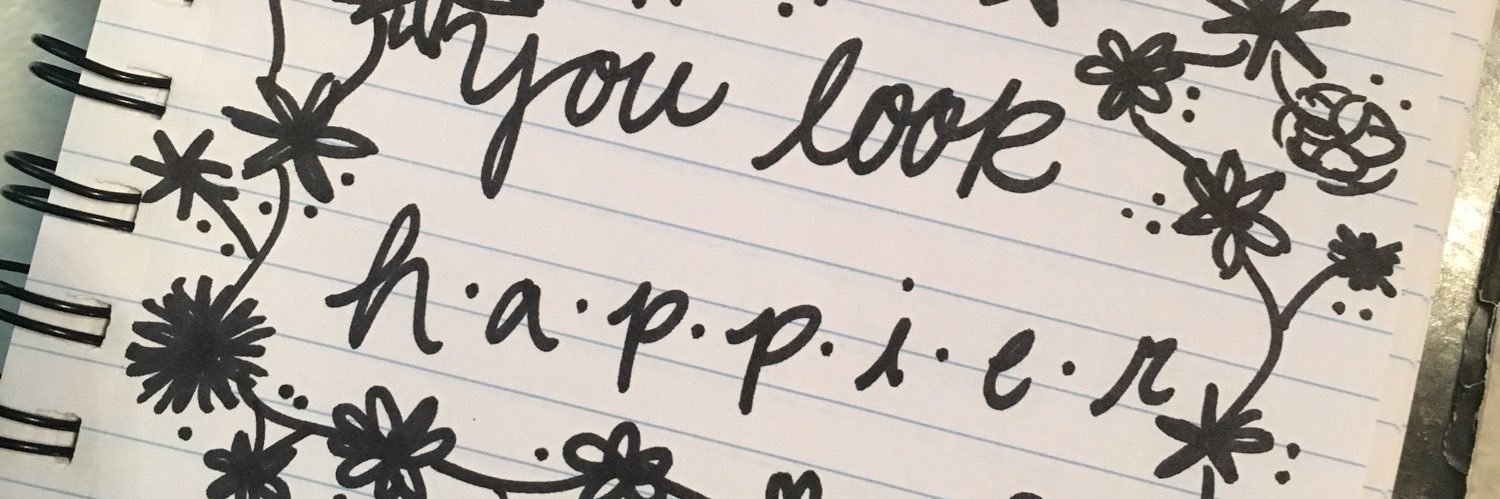 you look
h.a.p.p.i.e.r